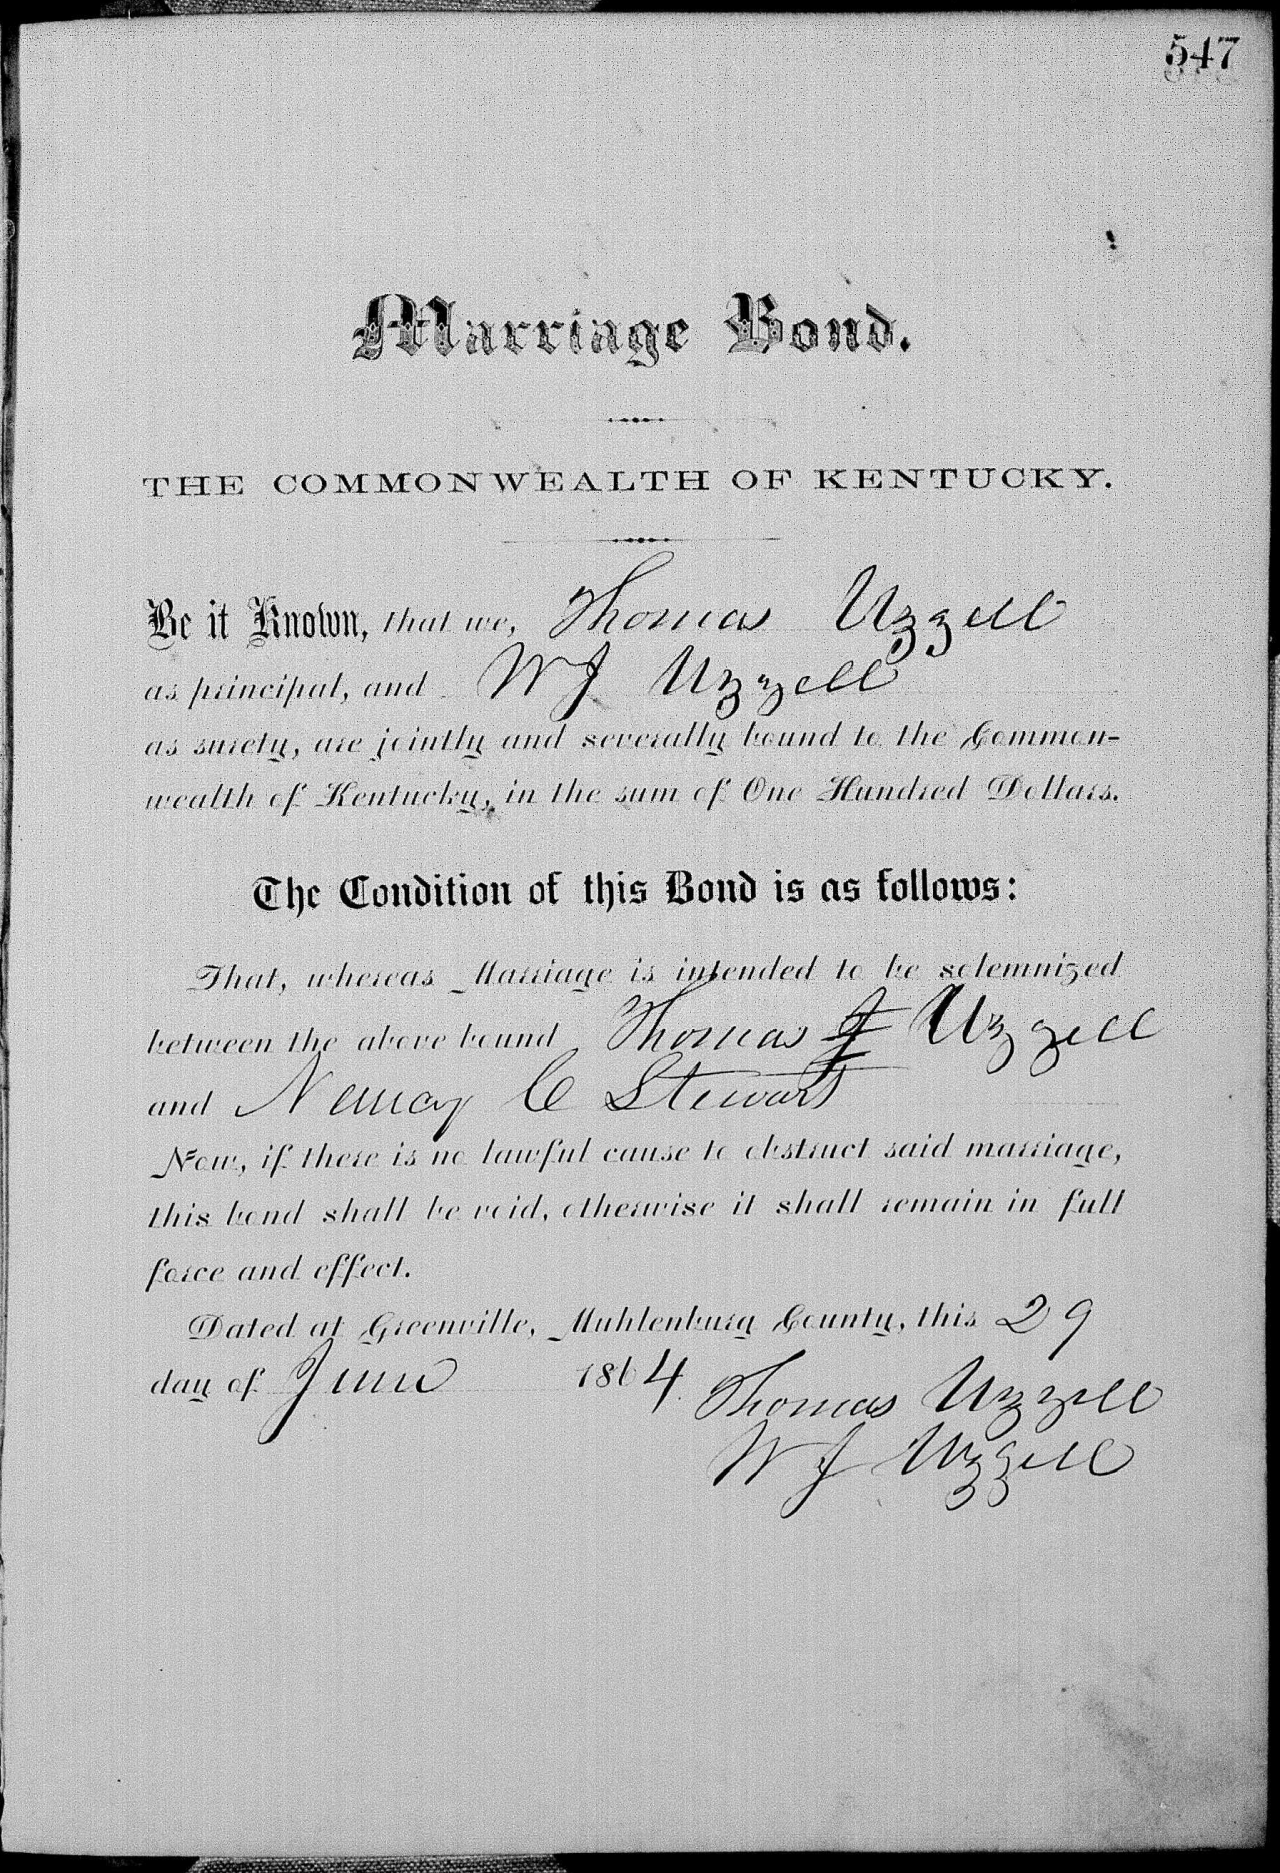 547
Marriage Bond.
THE COMMONWEALTH OF KENTUCKY.
Be it Known, that we, Thomas Uzzell
as principal, and W J Uzzell
as surety, are jointly and severally bound to the Common-
wealth of Kentucky, in the sum of One Hundred Dollars.
The Condition of this Bond is as follows:
That, whereas Marriage is intended to be solemnized
between the above bound Thomas J Uzzell
and Nancy C Stewart
Now, if there is no lawful cause to obstruct said marriage,
this bond shall be void, otherwise it shall remain in full
force and effect.
Dated at Greenville, Muhlenburg County, this 29
day of June 1864
Thomas Uzzell
W J Uzzell